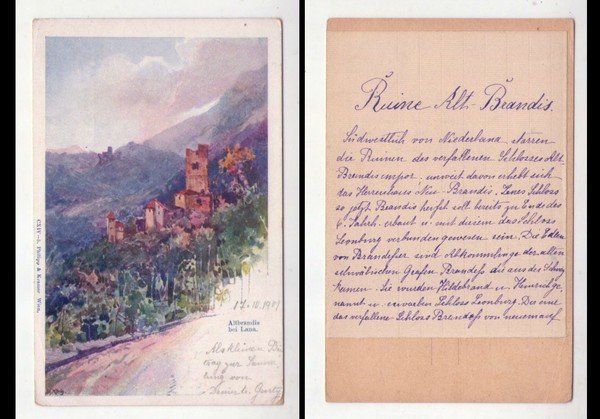 CLIV.–5. Philipp & Kramer, Wien.
17.10.1901
Altbrandis
bei Lana.
Als kleinen Bei
trag zur Samm
lung von
Gusty
Ruine Alt-Brandis.
Südwestlich von Niederlana starren
die Ruinen des verfallenen Schlosses Alt
Brandis empor, unweit davon erhebt sich
das Herrenhaus Neu-Brandis. Jenes Schloss
so jetzt Brandis heißt soll bereits zu Ende des
Jahrh. erbaut u. mit diesem das Schloss
Leonburg verbunden gewesen sein. Die Edlen
von Brandis sind Abkömmlinge der alten
schwäbischen Grafen die aus der Schweiz
kamen. Sie wurden Hildebrand u. Heinrich ge-
nannt u. erwarben Schloss Leonburg. Da eine
das verfallene Schloss Brandis von neuem auf